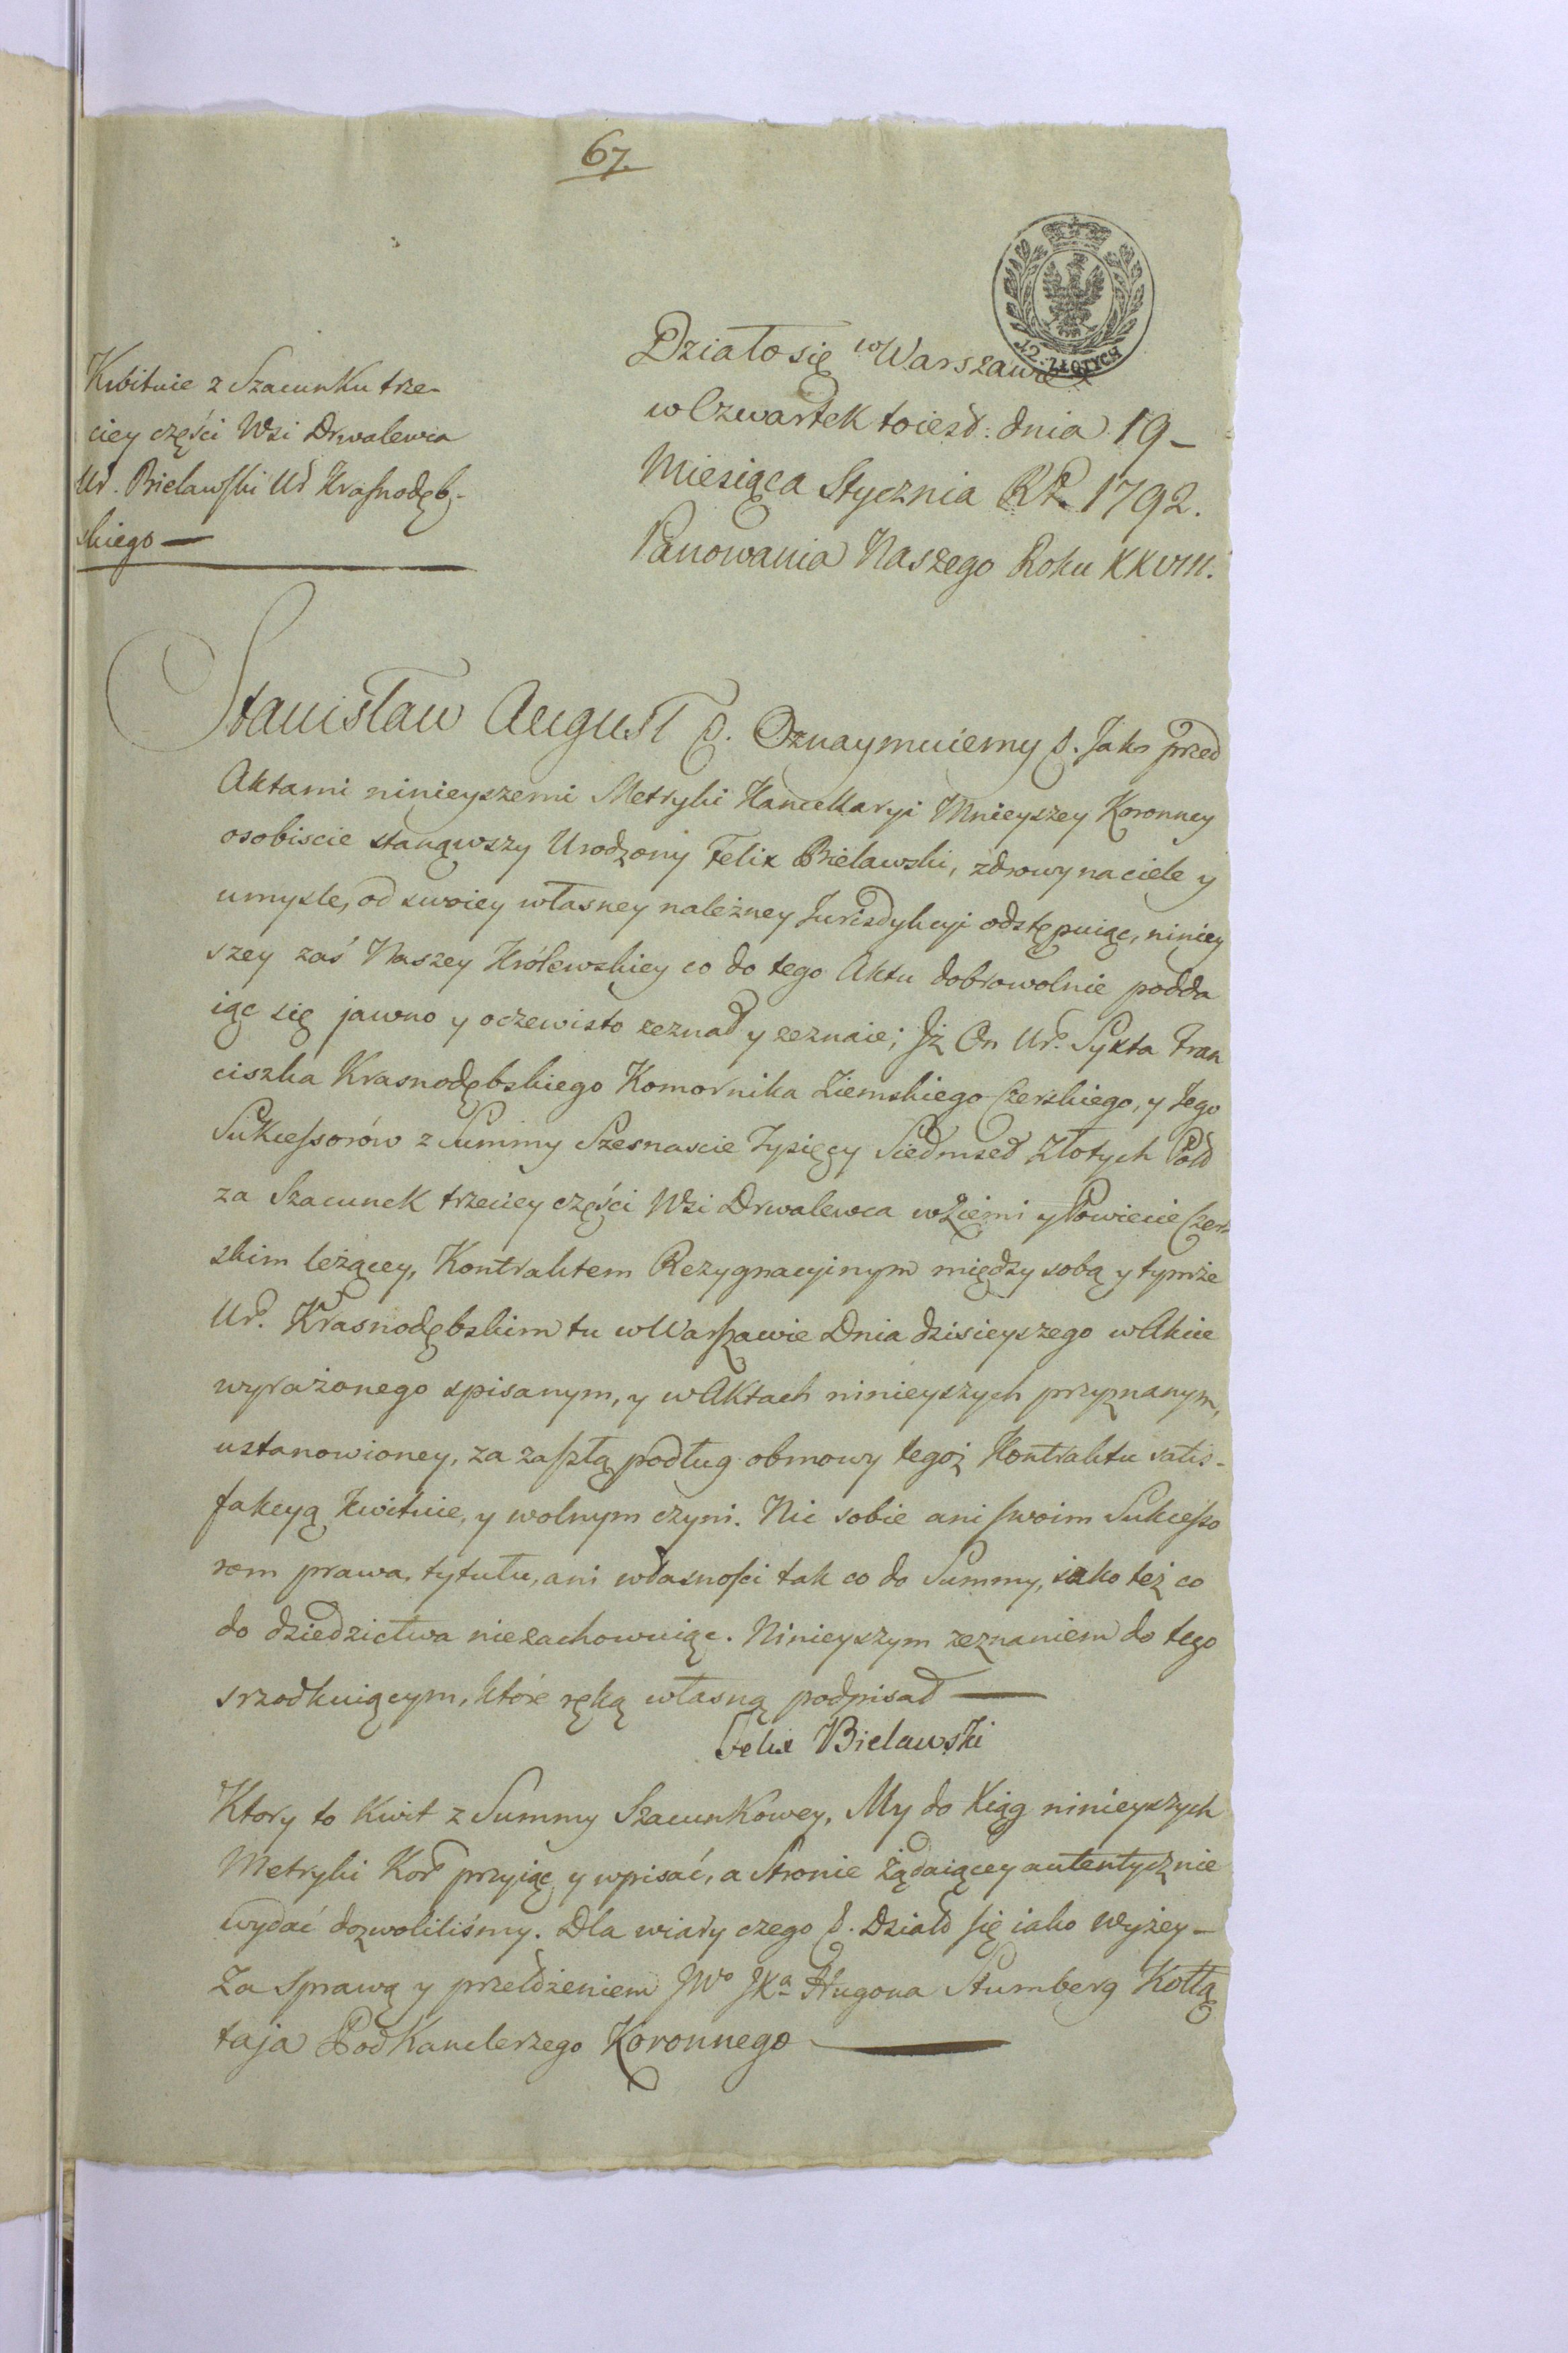 67.
12. ZŁOTYCH
Działo się w Warszawie
w Czwartek toiest: dnia 19 –
Miesiąca Stycznia RP. 1792.
Panowania Naszego Roku XXVIII.
Kwituie z Szacunku trze-
ciey części Wsi Drwalewca
Ur. Bielawski Ur Krasnodęb-
skiego —
Stanisław August &. Oznaymuiemy &. Jako przed
Aktami ninieyszemi Metryki Kancellaryi Mnieyszey Koronney
osobiscie stanąwszy Urodzony Felix Bielawski, zdrowy na ciele y
umysle, od swoiey własney należney Jurisdykcyi odstępuiąc, niniey
szey zaś Naszey Królewskiey co do tego Aktu dobrowolnie podda
iąc się jawno y oczewisto zeznał y zeznaie; Jż On Ur. Syxta Fran
ciszka Krasnodębskiego Komornika Ziemskiego Czerskiego, y Jego
Sukcessorów z Summy Szesnascie Tysięcy Siedmset Złotych Pold
za Szacunek trzeciey części Wsi Drwalewca w Ziemi y Powiecie Czer
skim leżącey, Kontraktem Rezygnacyinym między sobą y tymże
Ur. Krasnodębskim tu w Warszawie Dnia dzisieyszego w Akcie
wyrażonego spisanym, y w Aktach ninieyszych przyznanym,
ustanowioney, za zaszłą podług obmowy tegoż Kontraktu satis-
fakcyą kwituie, y wolnym czyni. Nic sobie ani swoim Sukcesso
rom prawa, tytułu, ani własności tak co do Summy, iako też co
do dziedzictwa niezachowuiąc. Ninieyszym zeznaniem do tego
srzodkuiącym, które ręką własną podpisał —
Felix Bielawski
Ktory to Kwit z Summy Szacunkowey, My do Xiąg ninieyszych
Metryki Kor przyiąć y wpisać, a Stronie żądaiącey autentycznie
wydać dozwoliliśmy. Dla wiary czego &. Działo się iako wyżey –
Za sprawą y przełożeniem JWo JXa Hugona Stumberg Kołłą
taja PodKanclerzego Koronnego —